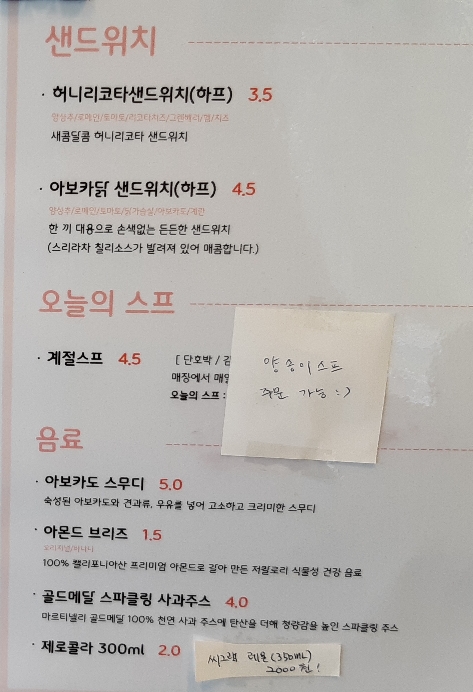 샌드위치
· 허니리코타샌드위치(하프) 3.5
양상추/로메인/토마토/리코타치즈/크랜베리/햄/치즈
새콤달콤 허니리코타 샌드위치
· 아보카닭 샌드위치(하프) 4.5
양상추/로메인/토마토/닭가슴살/아보카도/계란
한 끼 대용으로 손색없는 든든한 샌드위치
(스리라차 칠리소스가 발려져 있어 매콤합니다.)
오늘의 스프
· 계절스프 4.5
[ 단호박 /
매장에서
오늘의 스프 :
양송이스프
주문 가능 :)
음료
· 아보카도 스무디 5.0
숙성된 아보카도와 견과류, 우유를 넣어 고소하고 크리미한 스무디
· 아몬드 브리즈 1.5
오리지널/바나나
100% 캘리포니아산 프리미엄 아몬드로 갈아 만든 저칼로리 식물성 건강 음료
· 골드메달 스파클링 사과주스 4.0
마르티넬리 골드메달 100% 천연 사과 주스에 탄산을 더해 청량감을 높인 스파클링 주스
· 제로콜라 300ml 2.0
씨그램 레몬(350mL)
2000원!